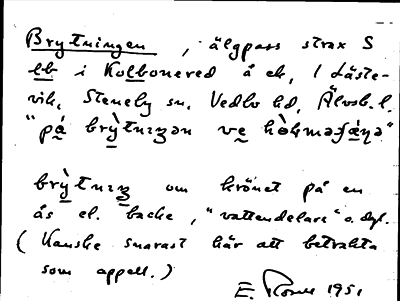 Brytningen, älgpass strax S
lb i Kolbonered å ek, 1 Läste-
vik, Steneby sn, Vedbo hd, Älvsb. l.
"på brytniŋən ve
brytniŋ om krönet på en
ås el. backe, "vattendelare" o. dyl.
(Kanske snarast här att betrakta
som appell.)
E. 1951